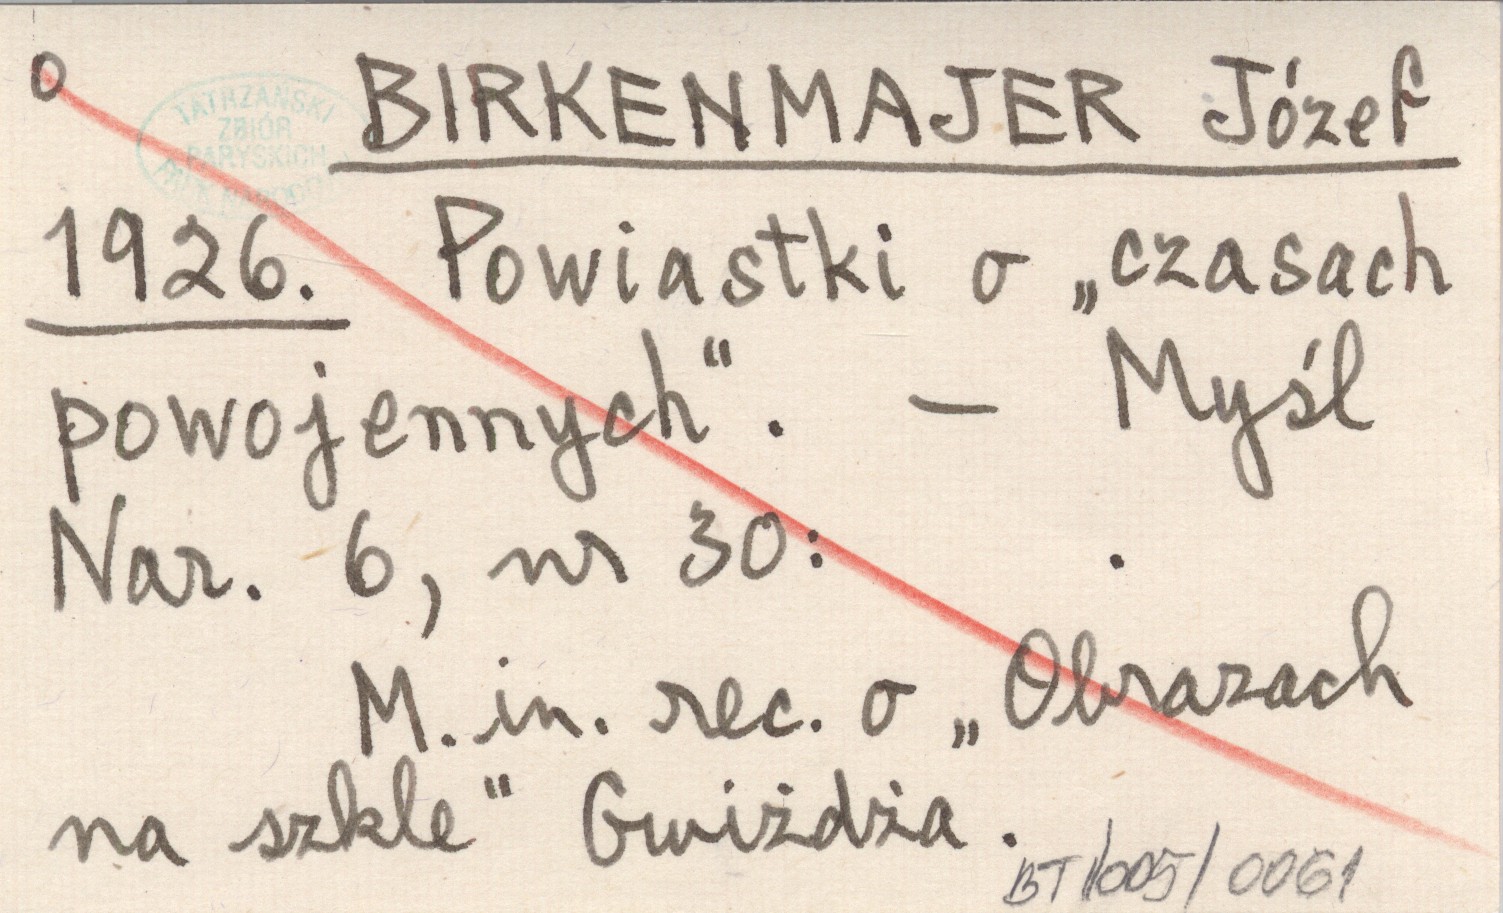 o
TATRZAŃSKI
ZBIÓR
PARYSKICH
BIRKENMAJER Józef
1926. Powiastki o „czasach
powojennych“. — Myśl
Nar. 6, nr 30: .
M. in. rec. o „Obrazach
na szkle“ Gwiżdża.
BT 1/005/0061